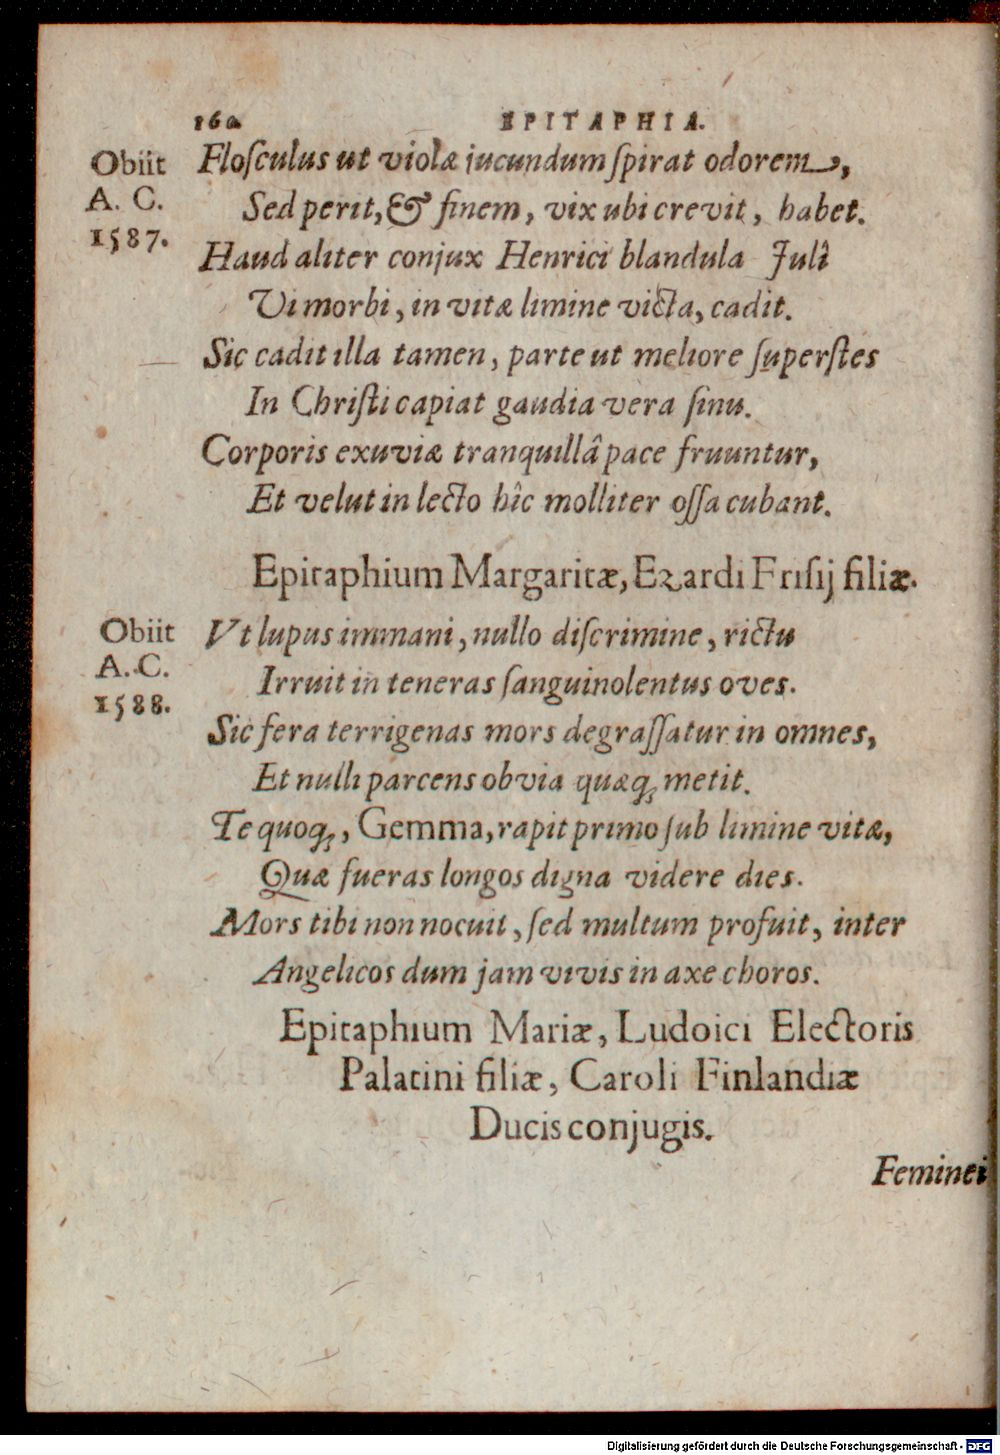 160 EPITAPHIA.
Obiit
A. C.
1587.
Floſculus ut violæ jucundum ſpirat odorem,
Sed perit, & finem, vix ubi crevit, habet.
Haud aliter conjux Henrici blandula Julî
Vi morbi, in vitæ limine victa, cadit.
Sic cadit illa tamen, parte ut meliore ſuperſtes
In Chriſti capiat gaudia vera ſinu.
Corporis exuviæ tranquillâ pace fruuntur,
Et velut in lecto hîc molliter oſſa cubant.
Epitaphium Margaritæ, Ezardi Friſij filiæ.
Obiit
A. C.
1588.
Vt lupus immani, nullo diſcrimine, rictu
Irruit in teneras ſanguinolentus oves.
Sic fera terrigenas mors degraſſatur in omnes,
Et nulli parcens obvia quæq; metit.
Te quoq;, Gemma, rapit primo ſub limine vitæ,
Quæ fueras longos digna videre dies.
Mors tibi non nocuit, ſed multum profuit, inter
Angelicos dum jam vivis in axe choros.
Epitaphium Mariæ, Ludoici Electoris
Palatini filiæ, Caroli Finlandiæ
Ducis conjugis.
Feminei
Digitalisierung gefördert durch die Deutsche Forschungsgemeinschaft - DFG